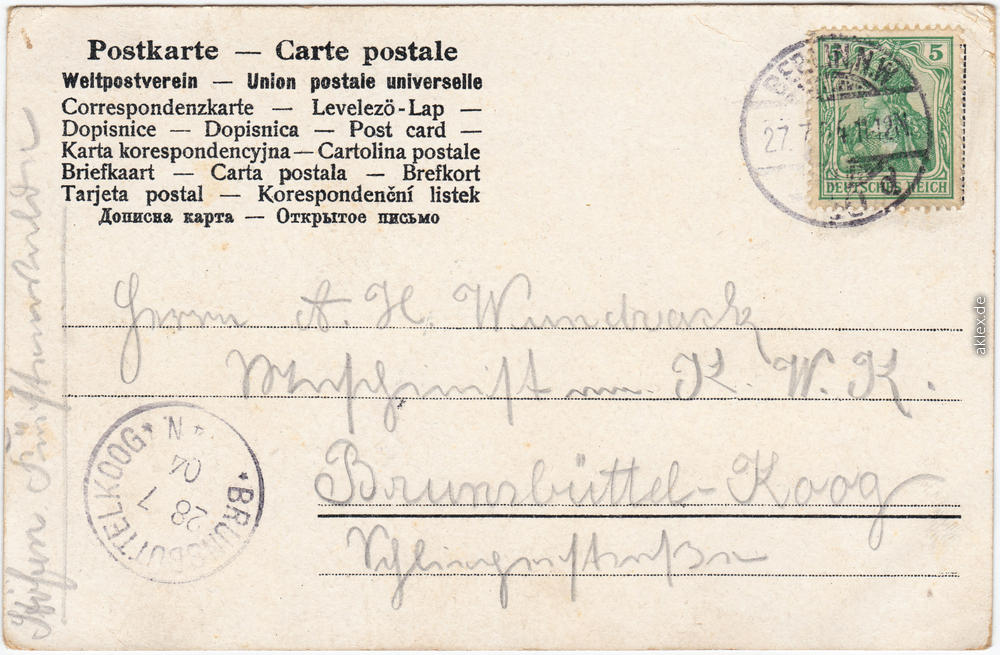 Postkarte — Carte postale
Weltpostverein — Union postale universelle
Correspondenzkarte — Levelezö-Lap —
Dopisnice — Dopisnica — Post card —
Karta korespondencyjna — Cartolina postale
Briefkaart — Carta postala — Brefkort
Tarjeta postal — Korespondenční listek
Дописна карта — Открытое письмо
5
DEUTSCHES REICH
BERLIN N.W.
27.7. 11-12N.
Herrn A. H. Wundrack
Maschinist K. W. K.
Brunsbüttel-Koog
Schlingerstraße
* BRUNSBÜTTELKOOG * N. *
28 7
04
aklex.de